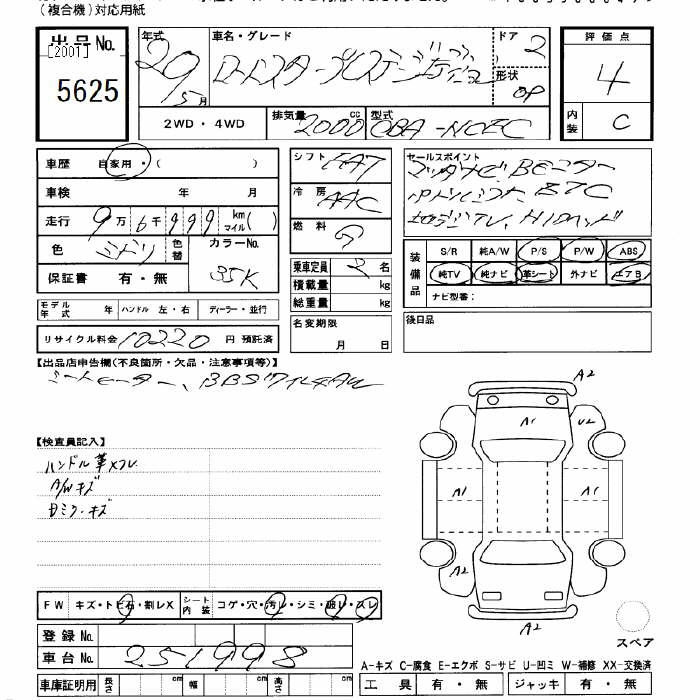 (複合機)対応用紙
出品No.
[2001]
5625
年式
20年
5月
車名・グレード
ロードスター プレステージエディション
ドア
2
形状
OP
2WD・4WD
排気量 2000 cc
型式 CBA-NCEC
評価点
4
内装
C
車歴 自家用・( )
車検 年 月
走行 9万6千999 km マイル( )
色 ミドリ 色替 カラーNo. 35K
保証書 有・無
モデル年式 年 ハンドル 左・右 ディーラー・並行
リサイクル料金 10220 円 預託済
シフト FA7
冷房 AAC
燃料 G
乗車定員 2 名
積載量 kg
総重量 kg
名変期限
月 日
セールスポイント
地デジTV、HIDヘッド
装備品
S/R 純A/W P/S P/W ABS
純TV 純ナビ 革シート 外ナビ エアB
ナビ型番:
後日品
【出品店申告欄(不良箇所・欠品・注意事項等)】
シートヒーター、BBS17インチAW
【検査員記入】
ハンドル革スレ
A/Wキズ
Dミラーキズ
A2
A1
U2
A1
A1
A2
A2
FW キズ・トビ石・割レX シート内装 コゲ・穴・汚レ・シミ・破レ・スレ
登録No.
車台No. 251998
車庫証明用 長さ cm 幅 cm 高さ cm
スペア
A-キズ C-腐食 E-エクボ S-サビ U-凹ミ W-補修 XX-交換済
工具 有・無 ジャッキ 有・無